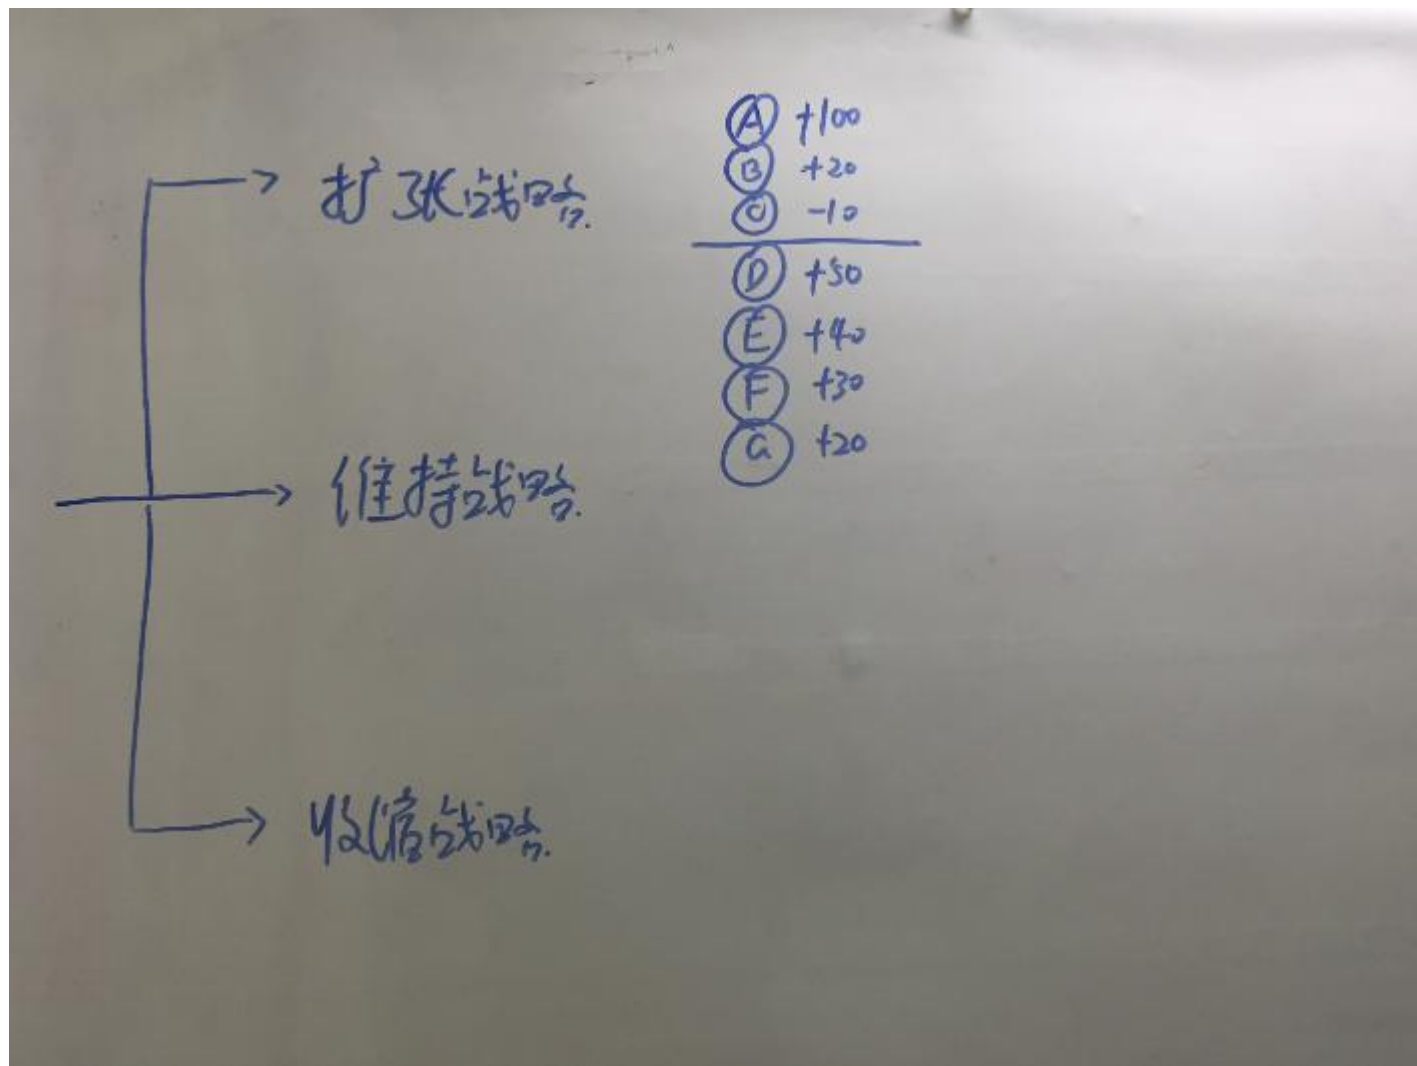 扩张战略.
维持战略.
收缩战略.
A +100
B +20
C -10
D +50
E +40
F +30
G +20